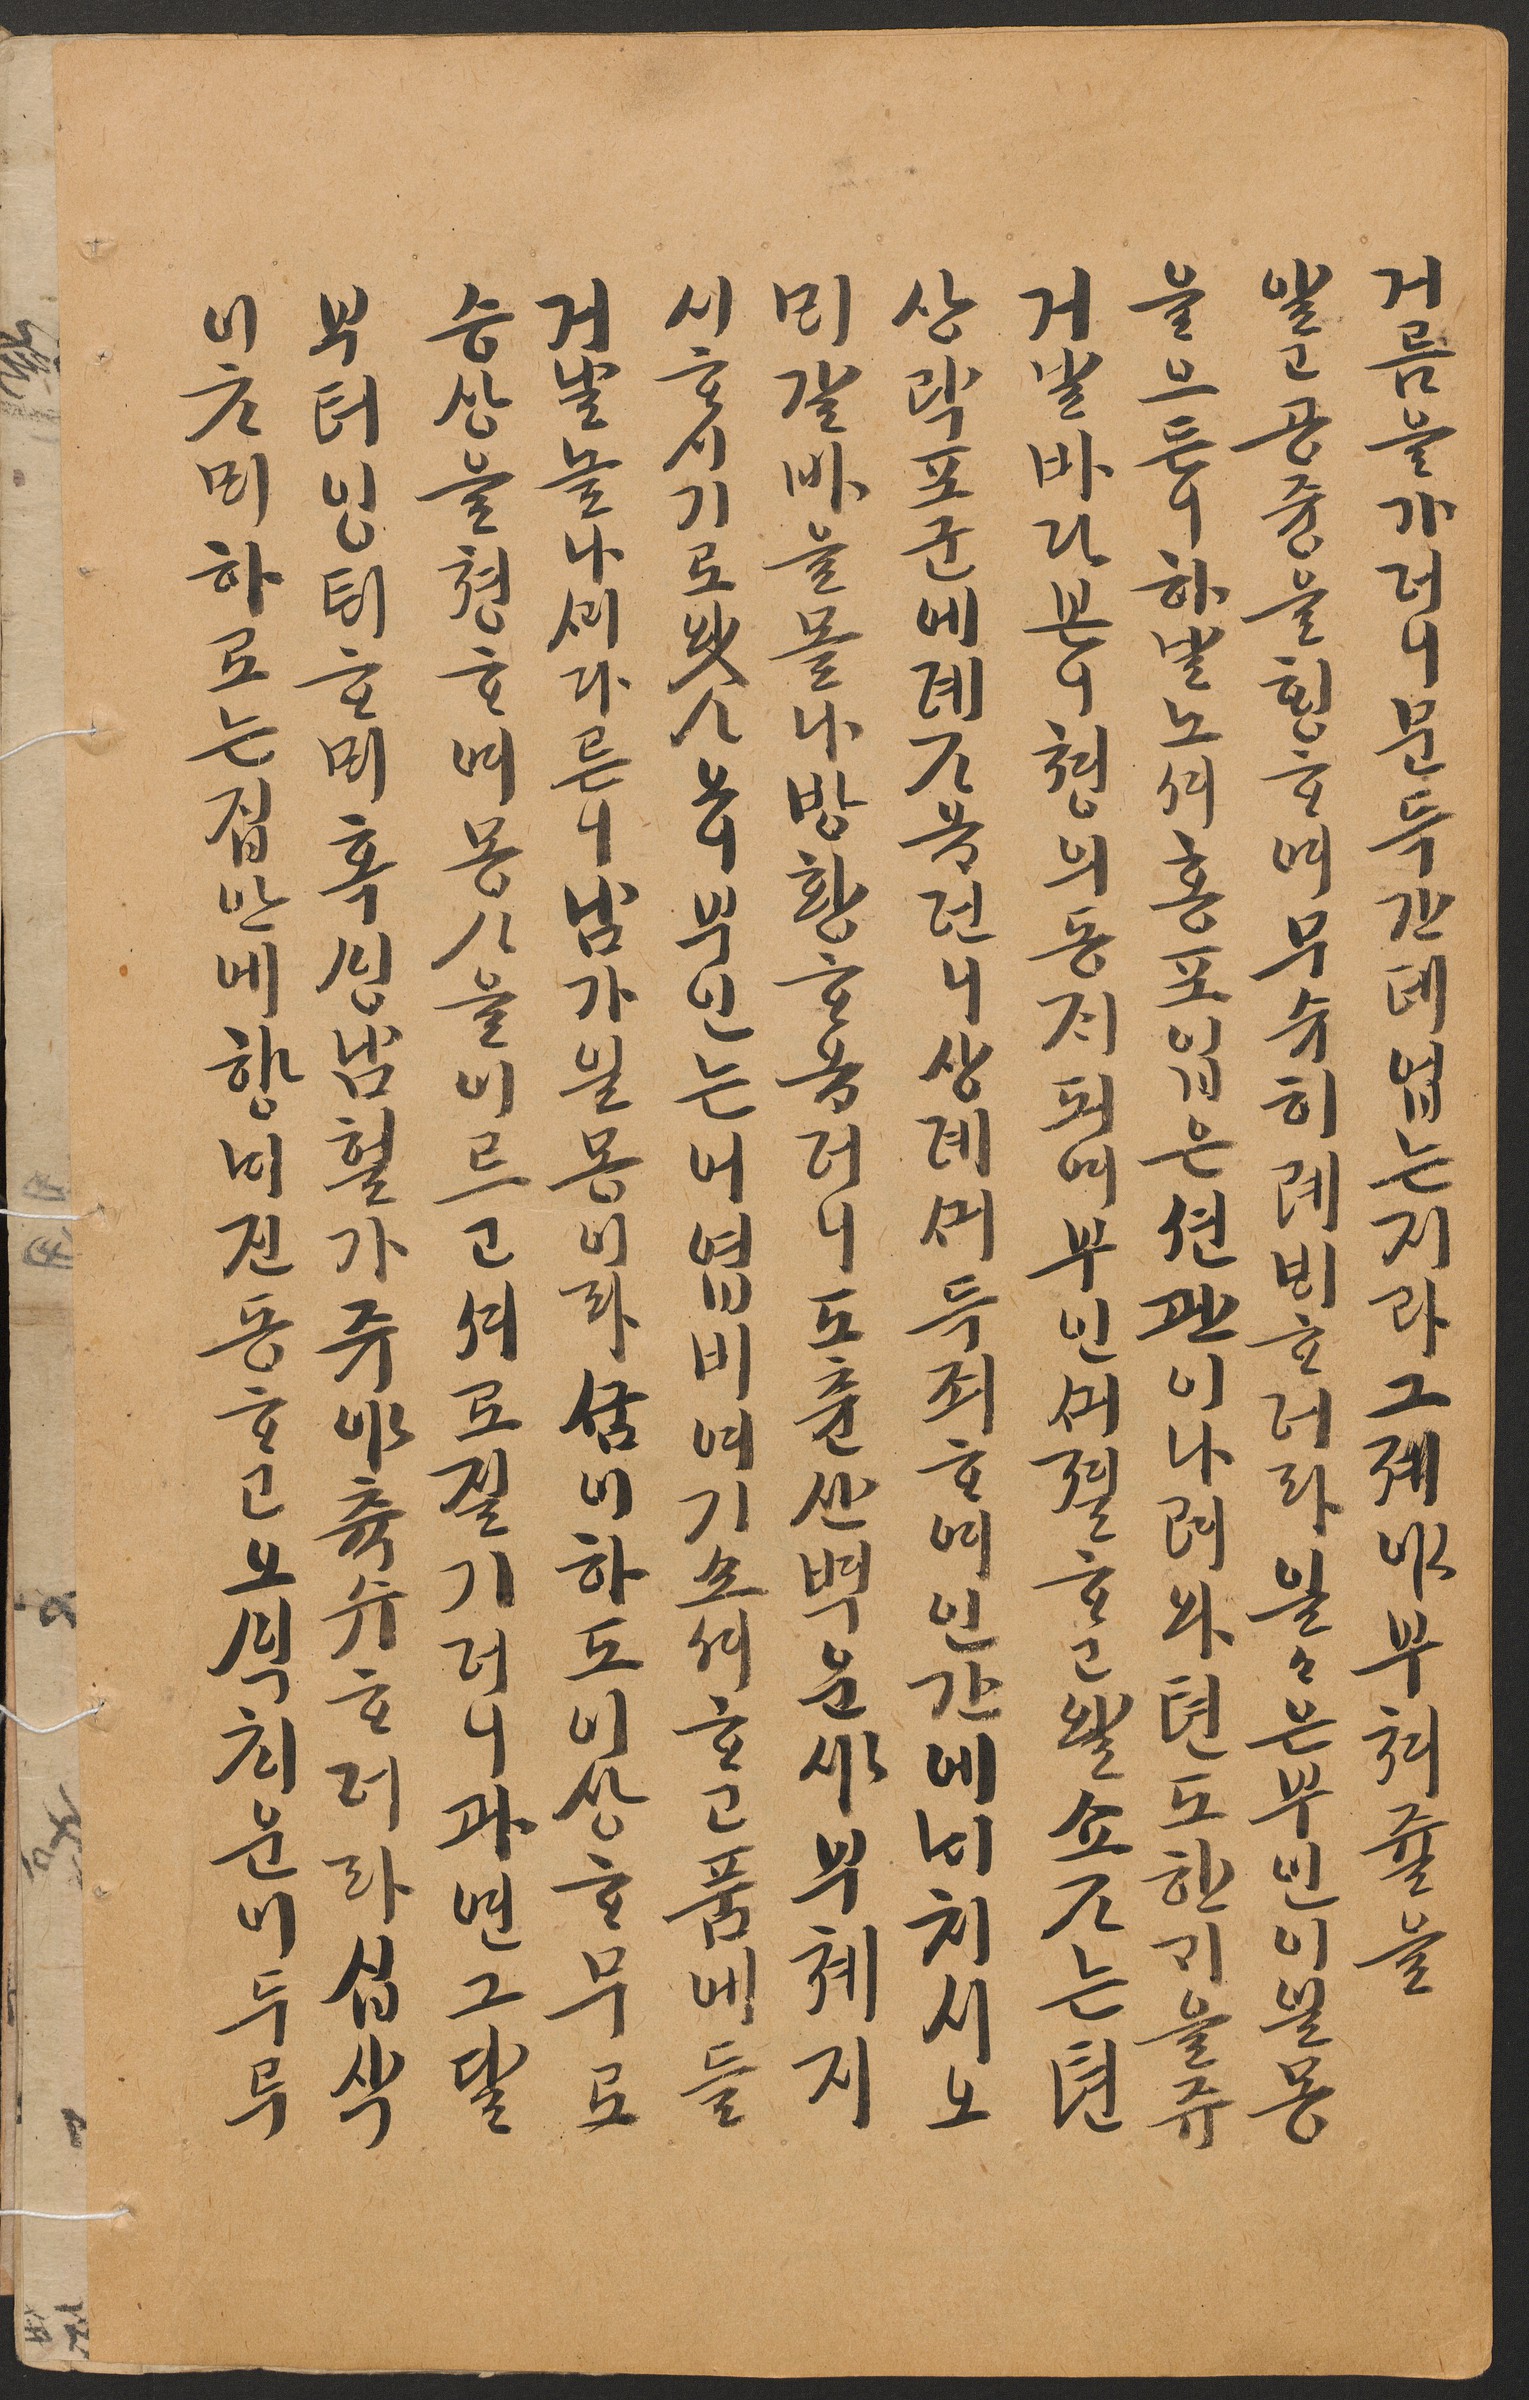 거름을 가더니 문득 간 데 업는지라 그졔야 부쳐 쥴을
알고 공즁을 힝ᄒᆞ여 무슈히 례비ᄒᆞ더라 일〻은 부인이 일몽
을 으든이 하날노셔 홍포 입은 션관이 나려와 텬도 한 기을 쥬
거날 바다 본이 형의 동지 되여 부인 ᄭᅴ졀ᄒᆞ고 왈 소ᄌᆞ는 텬
상 락포군에 례ᄌᆞ옵던니 상례ᄭᅴ 득죄ᄒᆞ여 인간에 니치시오
미 갈 바을 몰나 방황ᄒᆞ옵더니 도츈산 벽운사 부쳬 지
시ᄒᆞ시기로 왓ᄉᆞ오니 부인는 어엽비 여기소셔 ᄒᆞ고 품에 들
거날 놀나 ᄭᅵ다르니 남가일몽이라 심이 하도 이상ᄒᆞ무로
승상을 쳥ᄒᆞ여 몽ᄉᆞ을 이르고 셔로 질기더니 과연 그 달
부터 잉틱ᄒᆞ미 혹 싱남헐가 쥬야 츅슈ᄒᆞ더라 십삭
이 ᄎᆞ미 하로는 집안에 향니 진동ᄒᆞ고 오싁 치운이 두루